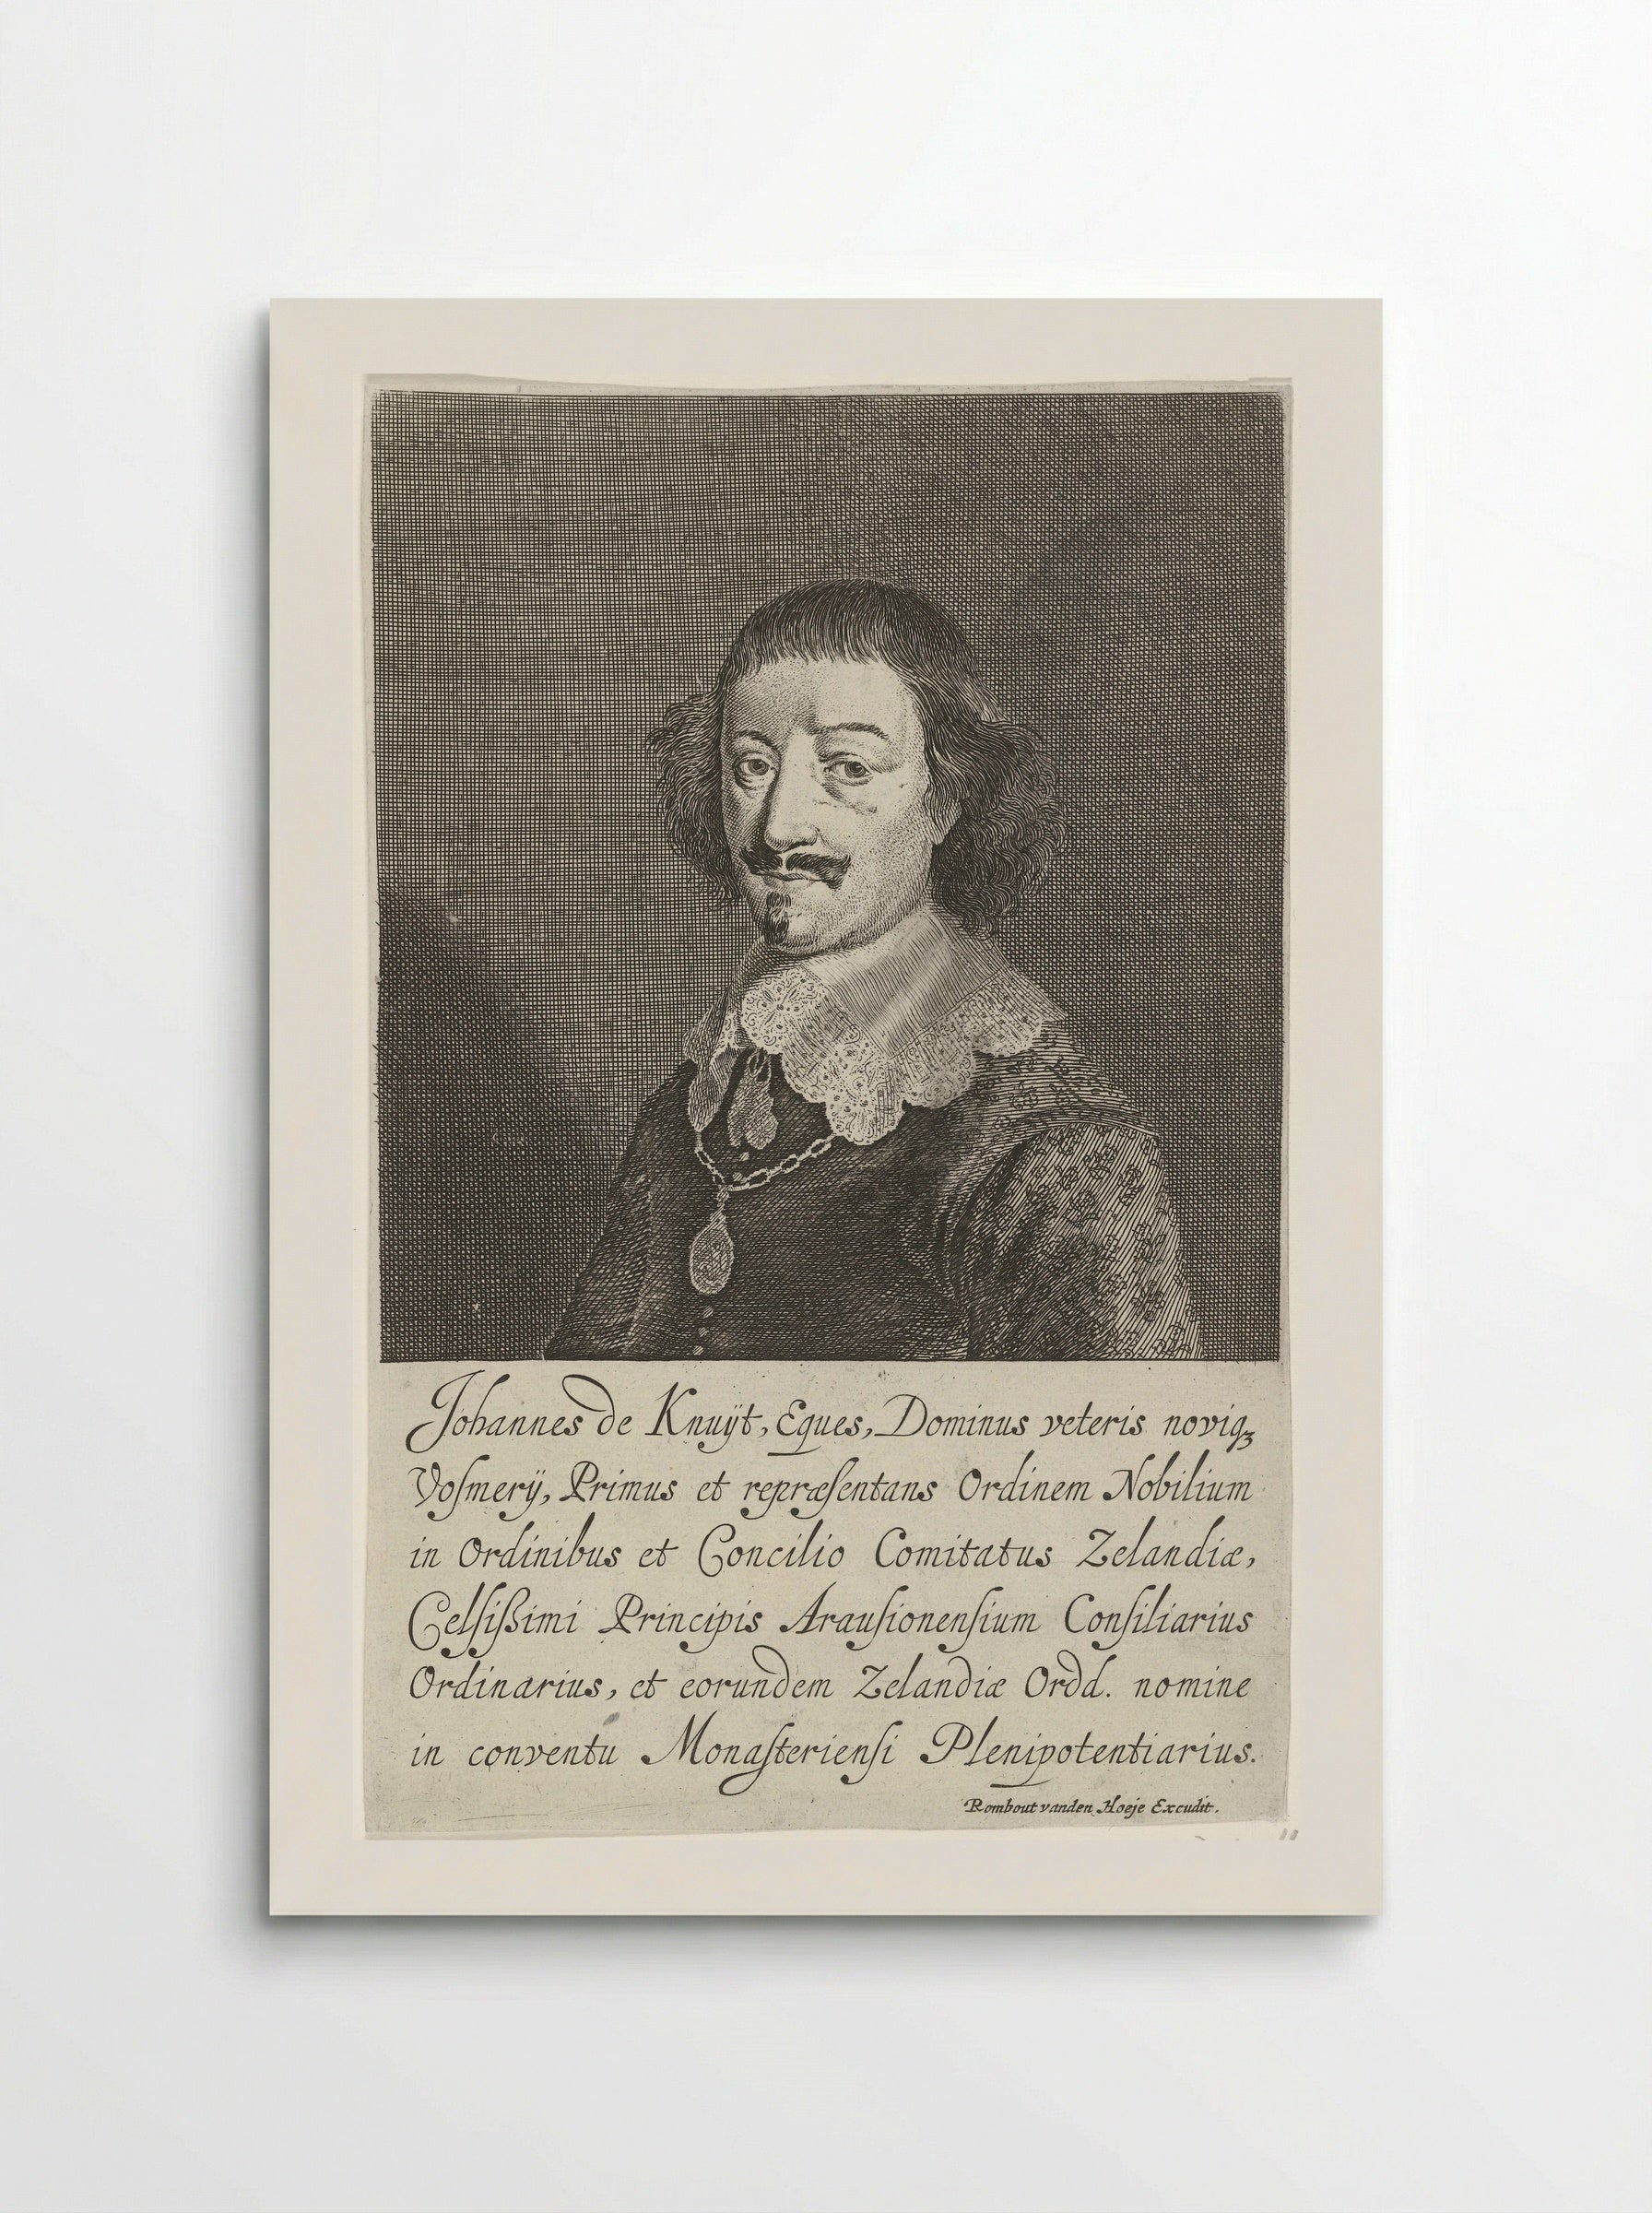 Johannes de Knuÿt, Eques, Dominus veteris noviqꝫ
Voſmerÿ, Primus et repræſentans Ordinem Nobilium
in Ordinibus et Concilio Comitatus Zelandiæ,
Celſißimi Principis Arauſionenſium Conſiliarius
Ordinarius, et eorundem Zelandiæ Ordd. nomine
in conventu Monaſterienſi Plenipotentiarius.
Rombout vanden Hoeje Excudit.